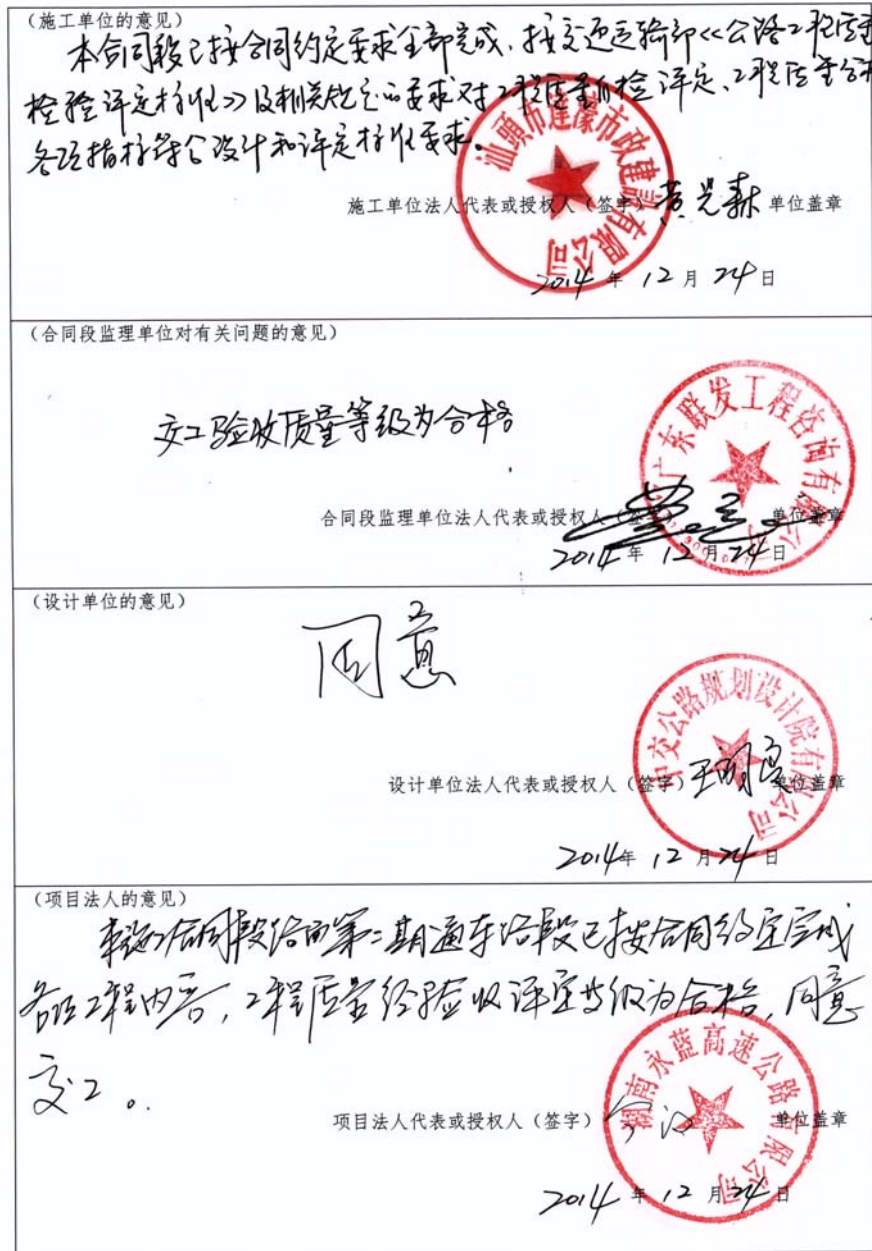 （施工单位的意见）
本合同段已按合同约定要求全部完成、按交通运输部《公路工程质量
检验评定标准》及相关规定的要求对工程质量自检评定、工程质量合格
各项指标符合设计和评定标准要求。
汕頭市達濠市政建設有限公司
施工单位法人代表或授权人（签字） 单位盖章
2014 年 12 月 24 日
（合同段监理单位对有关问题的意见）
交工验收质量等级为合格
广东联发工程咨询有限公司
合同段监理单位法人代表或授权人（签字） 单位盖章
2014 年 12 月 24 日
（设计单位的意见）
同意
中交公路规划设计院有限公司
设计单位法人代表或授权人（签字） 单位盖章
2014年 12 月 24 日
（项目法人的意见）
本施工合同段路面第二期通车路段已按合同约定完成
各项工程内容，工程质量经验收评定等级为合格，同意
交工。
湖南永蓝高速公路有限公司
项目法人代表或授权人（签字） 单位盖章
2014 年 12 月 24 日